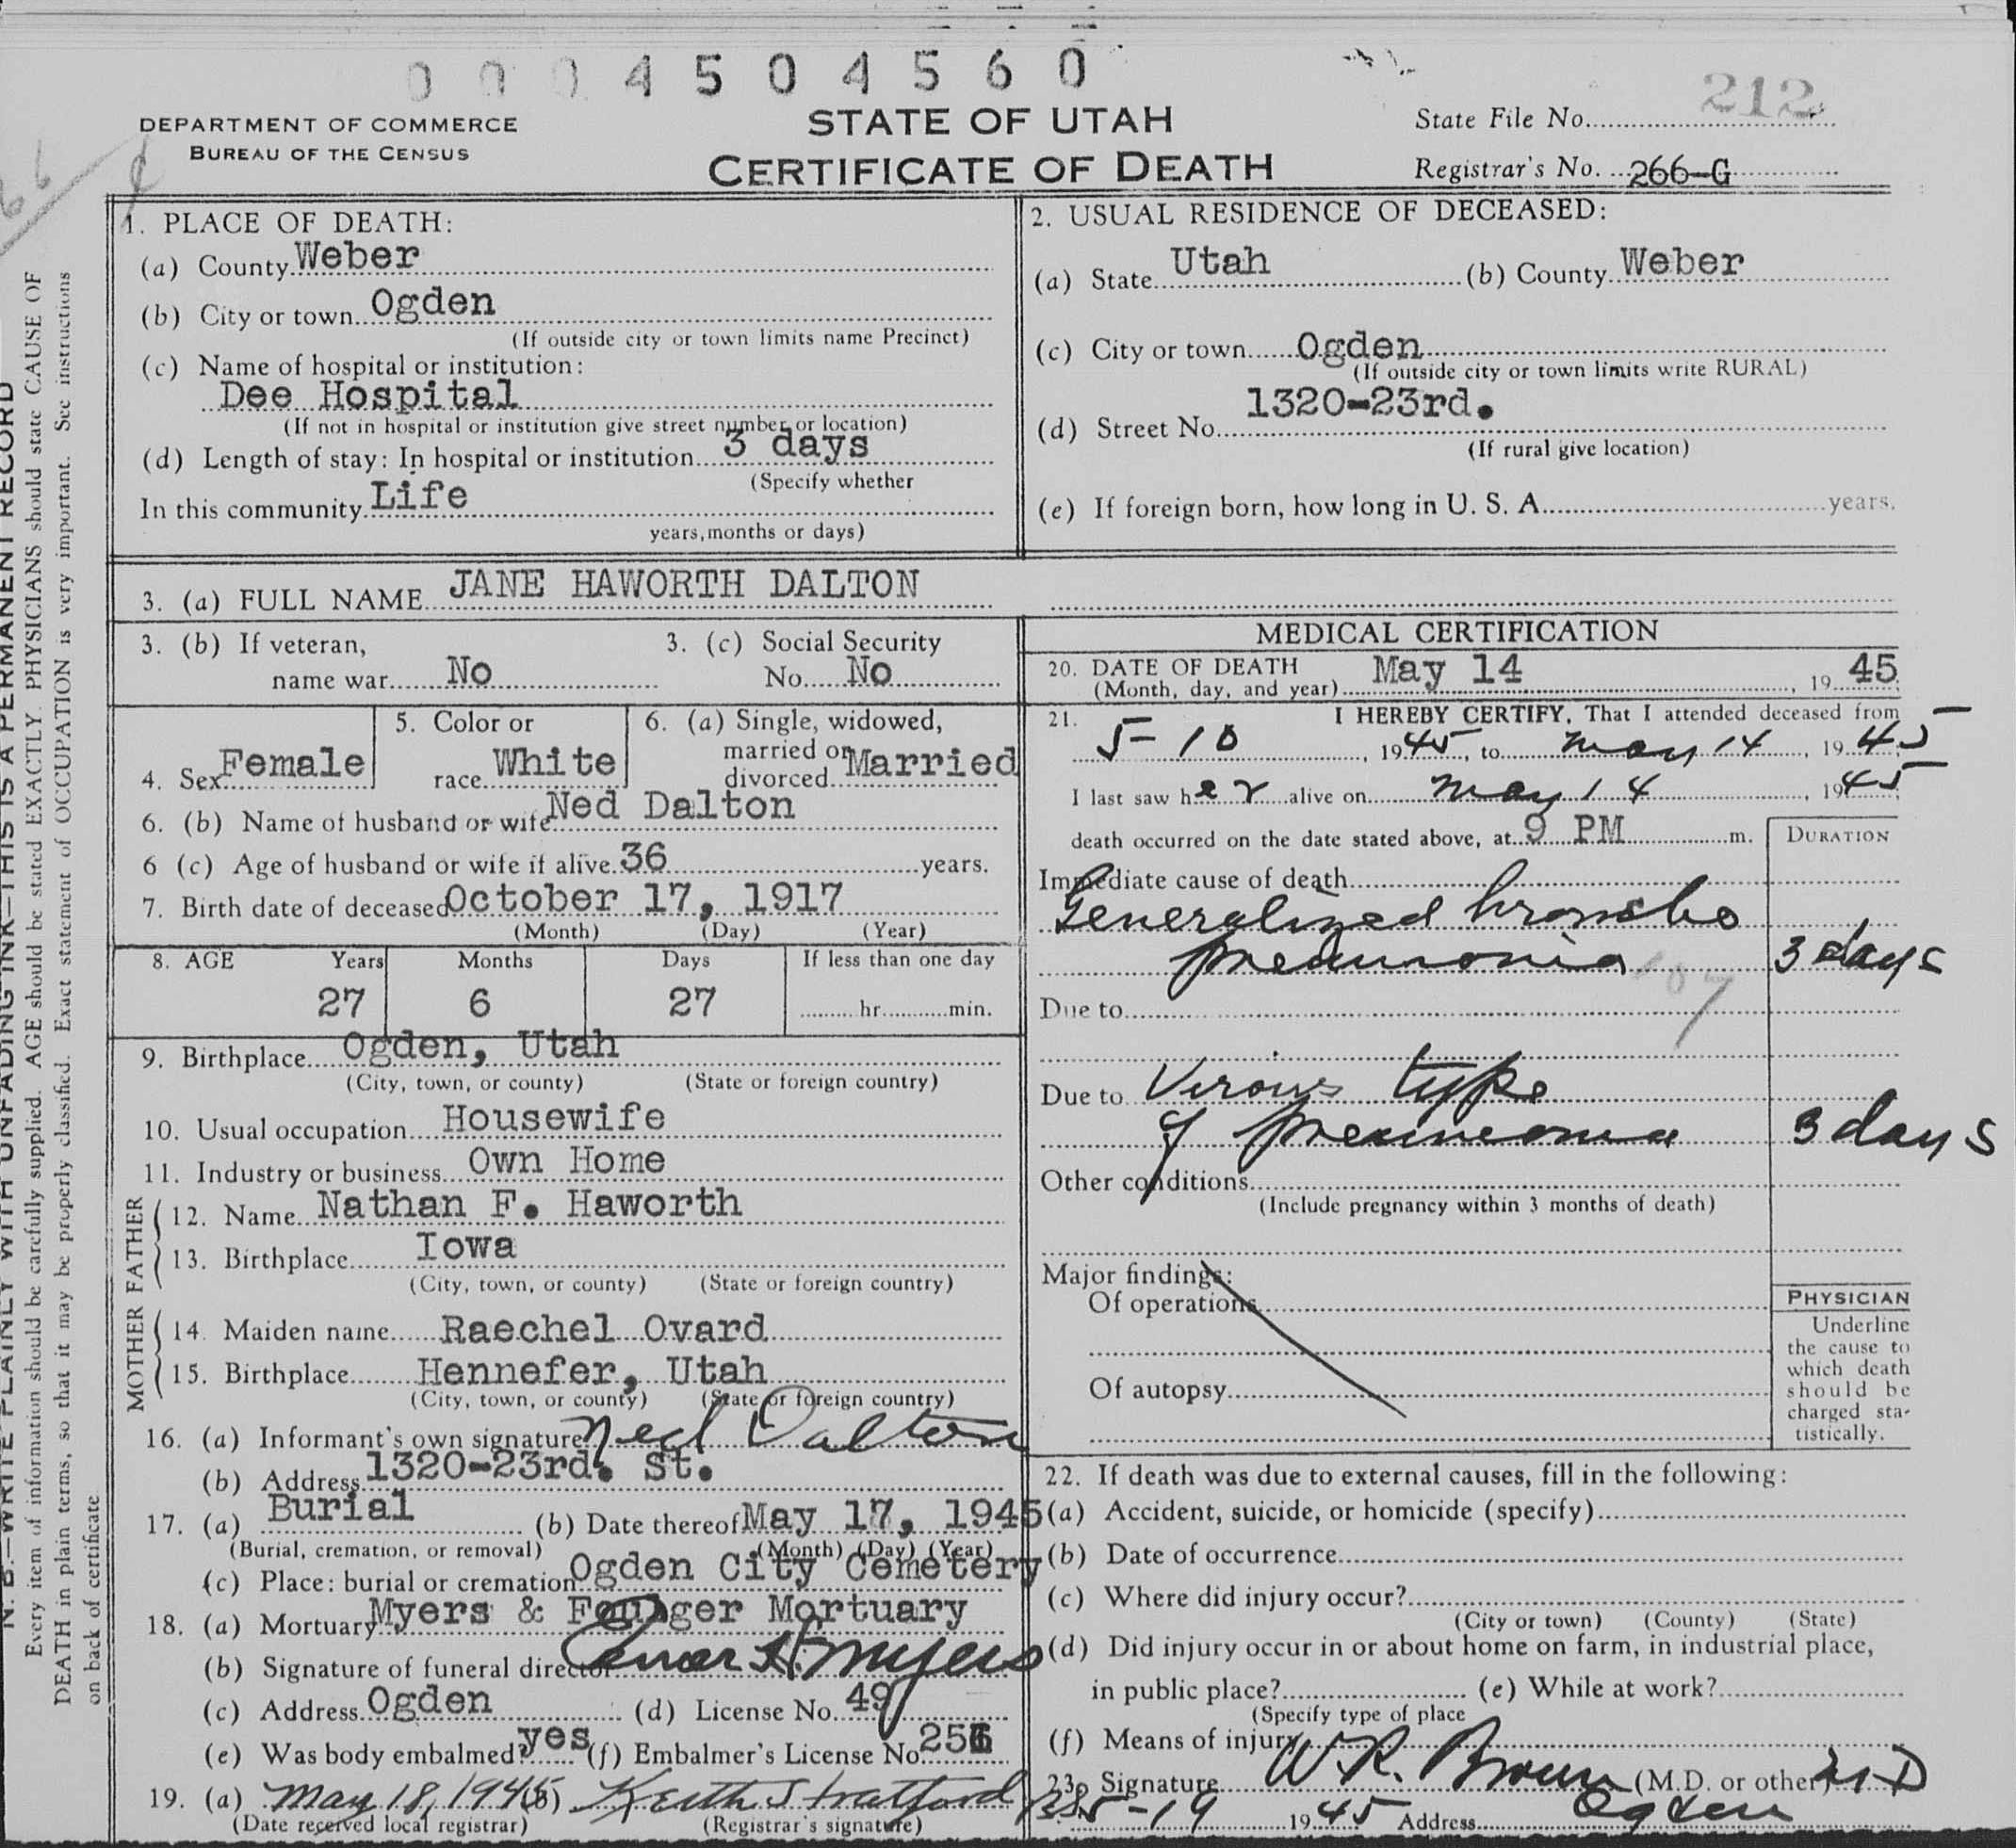 0 0 0 4 5 0 4 5 6 0
212
DEPARTMENT OF COMMERCE
BUREAU OF THE CENSUS
STATE OF UTAH
CERTIFICATE OF DEATH
State File No.
Registrar's No. 266-G
1. PLACE OF DEATH:
(a) County Weber
(b) City or town Ogden
(If outside city or town limits name Precinct)
(c) Name of hospital or institution:
Dee Hospital
(If not in hospital or institution give street number or location)
(d) Length of stay: In hospital or institution 3 days
(Specify whether
In this community Life
years, months or days)
2. USUAL RESIDENCE OF DECEASED:
(a) State Utah (b) County Weber
(c) City or town Ogden
(If outside city or town limits write RURAL)
(d) Street No. 1320-23rd.
(If rural give location)
(e) If foreign born, how long in U. S. A. years.
3. (a) FULL NAME JANE HAWORTH DALTON
3. (b) If veteran,
name war No
3. (c) Social Security
No. No
4. Sex Female
5. Color or
race White
6. (a) Single, widowed,
married or
divorced Married
6. (b) Name of husband or wife Ned Dalton
6 (c) Age of husband or wife if alive 36 years.
7. Birth date of deceased October 17, 1917
(Month) (Day) (Year)
8. AGE Years Months Days If less than one day
27 6 27 hr. min.
9. Birthplace Ogden, Utah
(City, town, or county) (State or foreign country)
10. Usual occupation Housewife
11. Industry or business Own Home
FATHER
12. Name Nathan F. Haworth
13. Birthplace Iowa
(City, town, or county) (State or foreign country)
MOTHER
14. Maiden name Raechel Ovard
15. Birthplace Hennefer, Utah
(City, town, or county) (State or foreign country)
16. (a) Informant's own signature Ned Dalton
(b) Address 1320-23rd. St.
17. (a) Burial (b) Date thereof May 17, 1945
(Burial, cremation, or removal) (Month) (Day) (Year)
(c) Place: burial or cremation Ogden City Cemetery
18. (a) Mortuary Myers & Foulger Mortuary
(b) Signature of funeral director H Myers
(c) Address Ogden (d) License No. 49
(e) Was body embalmed? yes (f) Embalmer's License No.
19. (a) May 18, 1945 (b) Keith Stratford
(Date received local registrar) (Registrar's signature)
MEDICAL CERTIFICATION
20. DATE OF DEATH May 14, 1945
(Month, day, and year)
21. I HEREBY CERTIFY, That I attended deceased from
5-10, 1945, to May 14, 1945
I last saw her alive on May 14, 1945
death occurred on the date stated above, at 9 PM m.
DURATION
Immediate cause of death
Generalized broncho
pneumonia 3 days
107
Due to
Due to Virous type
of pneumonia 3 days
Other conditions
(Include pregnancy within 3 months of death)
Major findings:
Of operations
Of autopsy
PHYSICIAN
Underline
the cause to
which death
should be
charged sta-
tistically.
22. If death was due to external causes, fill in the following:
(a) Accident, suicide, or homicide (specify)
(b) Date of occurrence
(c) Where did injury occur?
(City or town) (County) (State)
(d) Did injury occur in or about home on farm, in industrial place,
in public place? (e) While at work?
(Specify type of place
(f) Means of injury
23. Signature W R. Brown (M.D. or other) M D
5-19 1945 Address Ogden
N. B.—WRITE PLAINLY WITH UNFADING INK—THIS IS A PERMANENT RECORD
Every item of information should be carefully supplied. AGE should be stated EXACTLY. PHYSICIANS should state CAUSE OF
DEATH in plain terms, so that it may be properly classified. Exact statement of OCCUPATION is very important. See instructions
on back of certificate